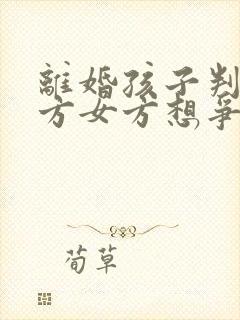 離婚孩子判
方女方想爭
荀草